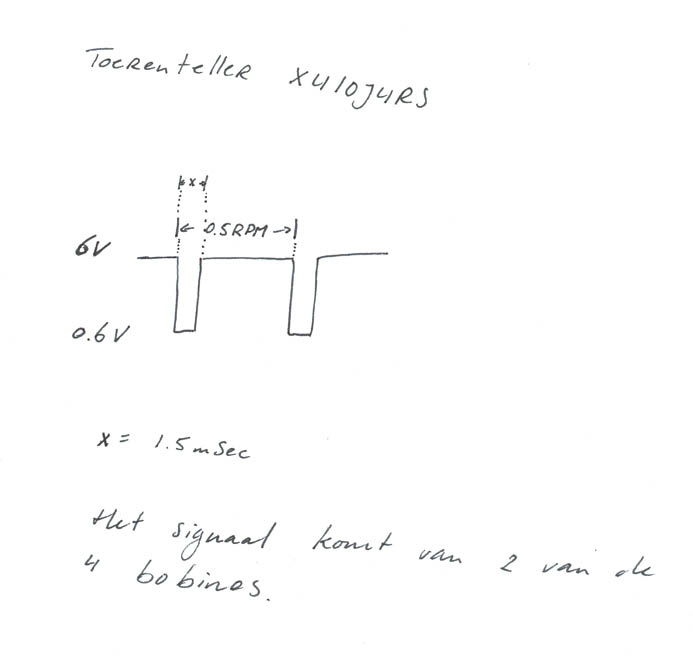 Toerenteller X410J4RS
x
0.5RPM
6V
0.6V
x = 1.5mSec
Het signaal komt van 2 van de
4 bobines.